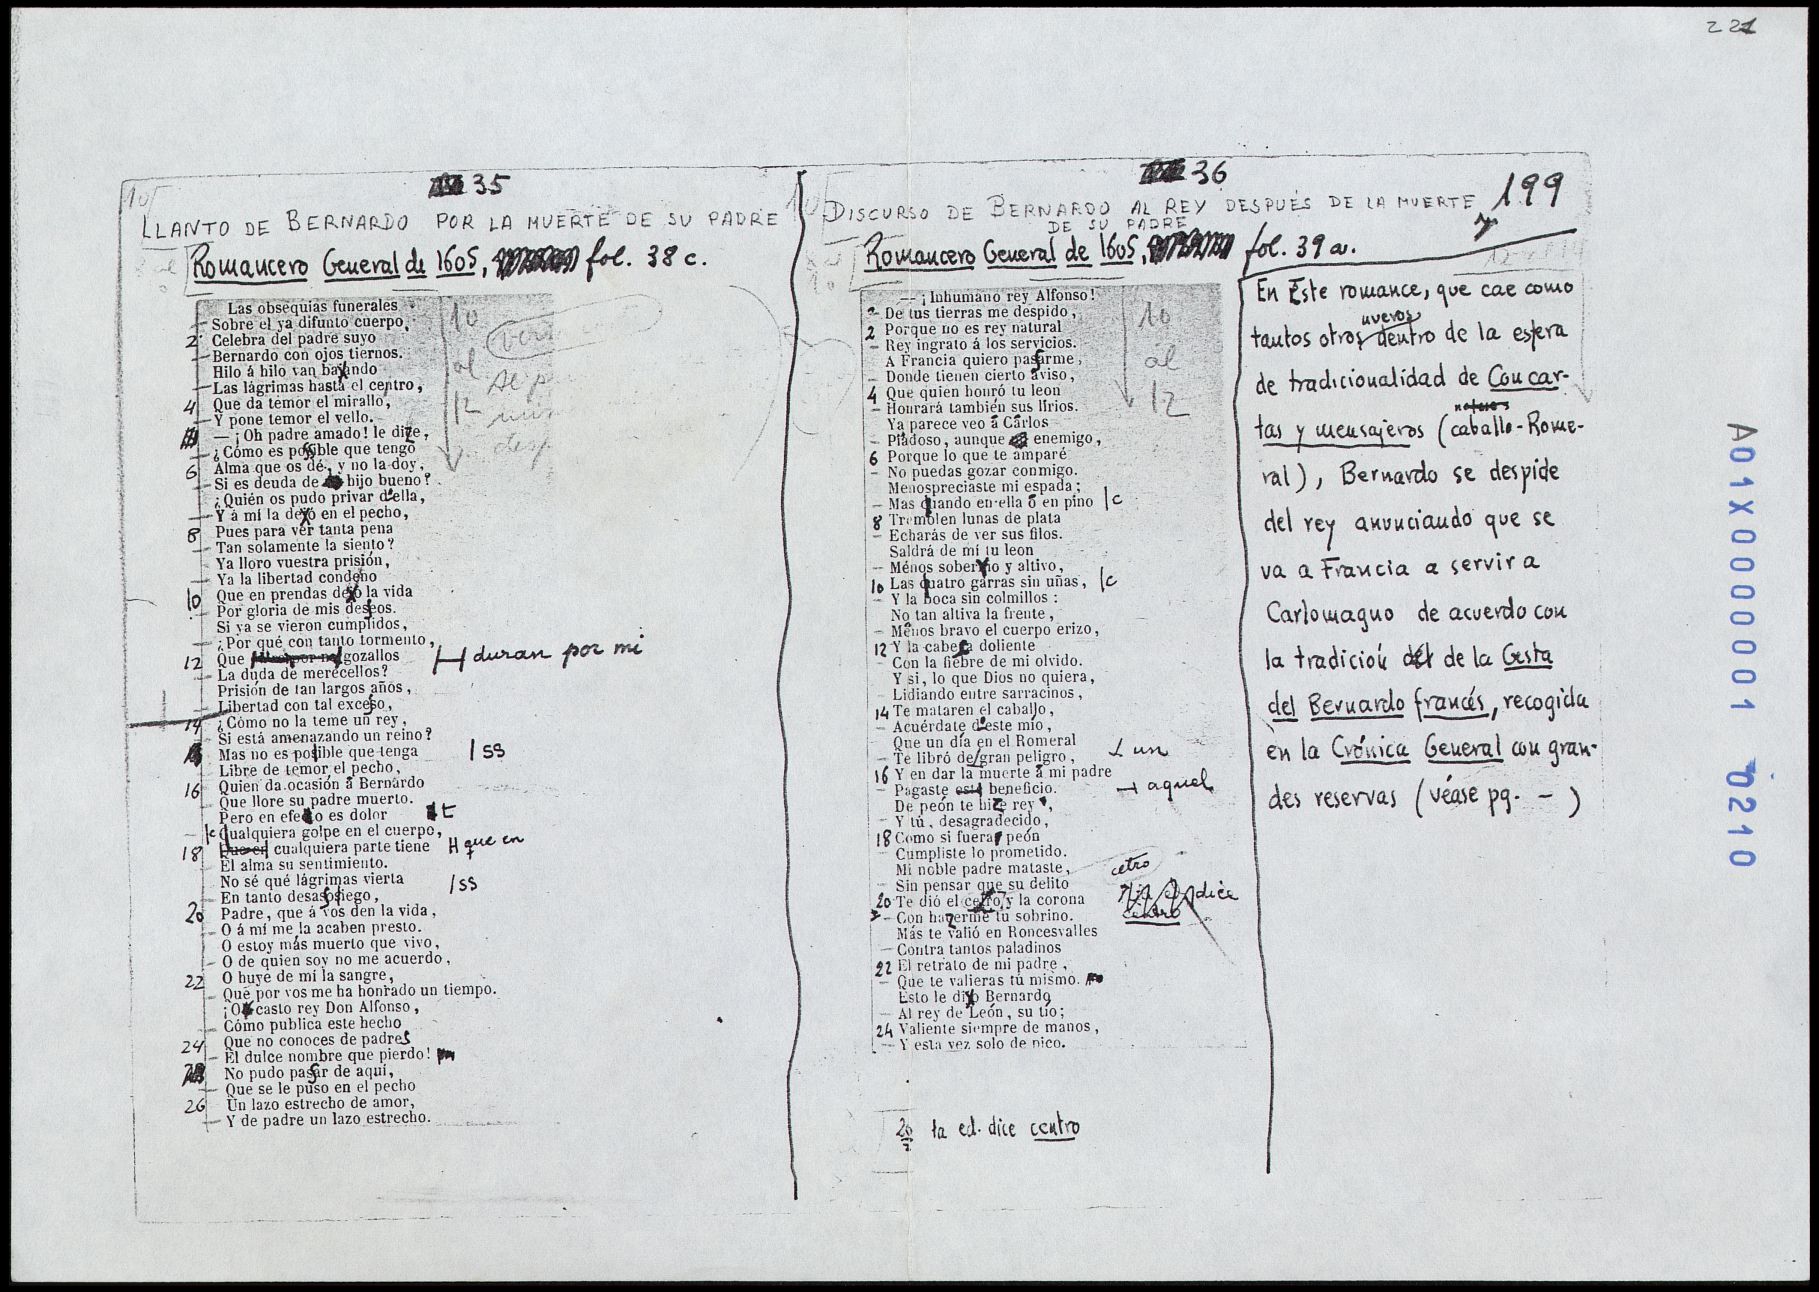 221
35
LLANTO DE BERNARDO POR LA MUERTE DE SU PADRE
Romancero General de 1605, fol. 38 c.
Las obsequias funerales
Sobre el ya difunto cuerpo,
2 Celebra del padre suyo
Bernardo con ojos tiernos.
Hilo á hilo van bajando
Las lágrimas hasta el centro,
4 Que da temor el mirallo,
Y pone temor el vello.
— ¡Oh padre amado! le dize,
¿Cómo es possible que tengo
6 Alma que os dé, y no la doy,
Si es deuda de hijo bueno?
¿Quién os pudo privar d'ella,
Y á mí la dexó en el pecho,
8 Pues para ver tanta pena
Tan solamente la siento?
Ya lloro vuestra prisión,
Ya la libertad condeno
10 Que en prendas dexó la vida
Por gloria de mis deseos.
Si ya se vieron cumplidos,
¿Por qué con tanto tormento,
12 Que gozallos duran por mi
La duda de merecellos?
Prisión de tan largos años,
Libertad con tal exceso,
14 ¿Cómo no la teme un rey,
Si está amenazando un reino?
Mas no es posible que tenga /ss
Libre de temor el pecho,
16 Quien da ocasión á Bernardo
Que llore su padre muerto.
Pero en efeto es dolor t
/c Cualquiera golpe en el cuerpo,
18 cualquiera parte tiene que en
El alma su sentimiento.
No sé qué lágrimas vierta /ss
En tanto desasosiego,
20 Padre, que á vos den la vida,
O á mí me la acaben presto.
O estoy más muerto que vivo,
O de quien soy no me acuerdo,
22 O huye de mí la sangre,
Que por vos me ha honrado un tiempo.
¡O casto rey Don Alfonso,
Cómo publica este hecho
24 Que no conoces de padres
El dulce nombre que pierdo!
No pudo pasar de aqui,
Que se le puso en el pecho
26 Un lazo estrecho de amor,
Y de padre un lazo estrecho.
36
199
DISCURSO DE BERNARDO AL REY DESPUÉS DE LA MUERTE
DE SU PADRE
Romancero General de 1605, fol. 39 a.
— ¡Inhumano rey Alfonso!
De tus tierras me despido,
2 Porque no es rey natural
Rey ingrato á los servicios.
A Francia quiero pasarme,
Donde tienen cierto aviso,
4 Que quien honró tu leon
Honrará también sus lirios.
Ya parece veo á Cárlos
Piadoso, aunque enemigo,
6 Porque lo que te amparé
No puedas gozar conmigo.
Menospreciaste mi espada;
Mas quando en ella ó en pino /c
8 Tremolen lunas de plata
Echarás de ver sus filos.
Saldrá de mí tu leon
Ménos sobervio y altivo,
10 Las quatro garras sin uñas, /c
Y la boca sin colmillos:
No tan altiva la frente,
Ménos bravo el cuerpo erizo,
12 Y la cabeça doliente
Con la fiebre de mi olvido.
Y si, lo que Dios no quiera,
Lidiando entre sarracinos,
14 Te mataren el caballo,
Acuérdate d'este mio,
Que un día en el Romeral
Te libró de gran peligro, un
16 Y en dar la muerte á mi padre
Pagaste este beneficio. aquel
De peón te hize rey,
Y tú, desagradecido,
18 Como si fuera peón
Cumpliste lo prometido.
Mi noble padre mataste, cetro
Sin pensar que su delito
20 Te dió el cetro y la corona dice
Con hazerme tu sobrino. centro
Más te valió en Roncesvalles
Contra tantos paladinos
22 El retrato de mi padre,
Que te valieras tú mismo.
Esto le dixo Bernardo
Al rey de León, su tío;
24 Valiente siempre de manos,
Y esta vez solo de pico.
20 la ed. dice centro
En Este romance, que cae como
tantos otros nuevos dentro de la esfera
de tradicionalidad de Con car-
tas y mensajeros (caballo-Rome-
ral), Bernardo se despide
del rey anunciando que se
va a Francia a servir a
Carlomagno de acuerdo con
la tradición de la Gesta
del Bernardo francés, recogida
en la Crónica General con gran-
des reservas (véase pg. — )
A01X0000001 0210